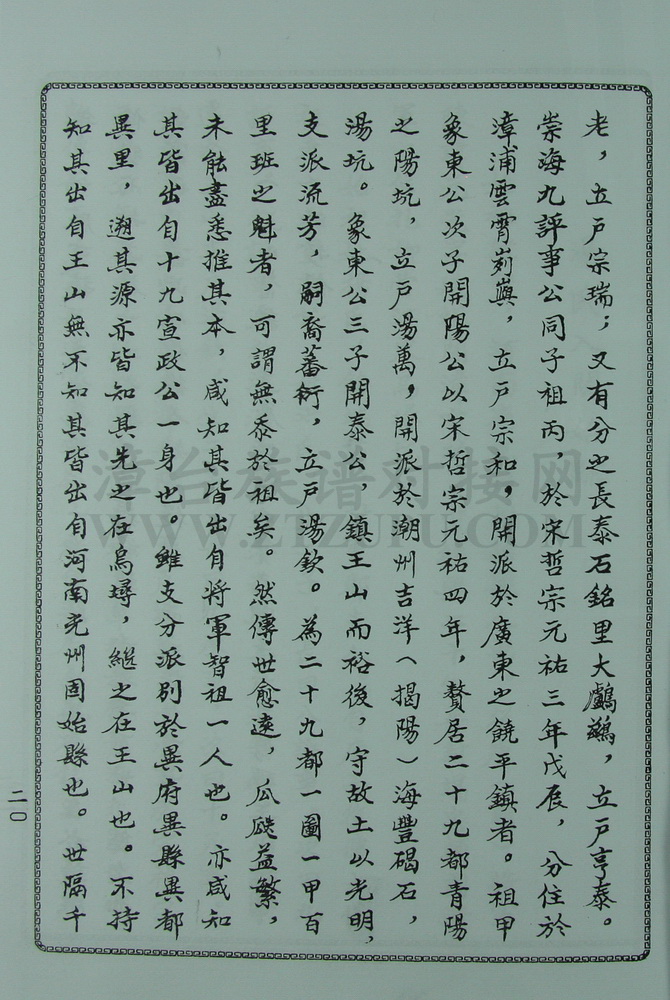 老，立戶宗瑞；又有分之長泰石銘里大鸕鶿，立戶亨泰。
崇海九評事公同子祖丙，於宋哲宗元祐三年戊辰，分住於
漳浦雲霄剪嶼，立戶宗和，開派於廣東之饒平鎮者。祖甲
象東公次子開陽公以宋哲宗元祐四年，贅居二十九都青陽
之陽坑，立戶湯萬，開派於潮州吉洋（揭陽）海豐碣石，
湯坑。象東公三子開泰公，鎮王山而裕後，守故土以光明，
支派流芳，嗣裔蕃衍，立戶湯欽。為二十九都一圖一甲百
里班之魁者，可謂無忝於祖矣。然傳世愈遠，瓜瓞益繁，
未能盡悉推其本，咸知其皆出自將軍智祖一人也。亦咸知
其皆出自十九宣政公一身也。雖支分派別於異府異縣異都
異里，遡其源亦皆知其先之在烏潯，繼之在王山也。不持
知其出自王山無不知其皆出自河南光州固始縣也。世隔千
二〇
漳台族谱对接网
WWW.ZTZUPU.COM